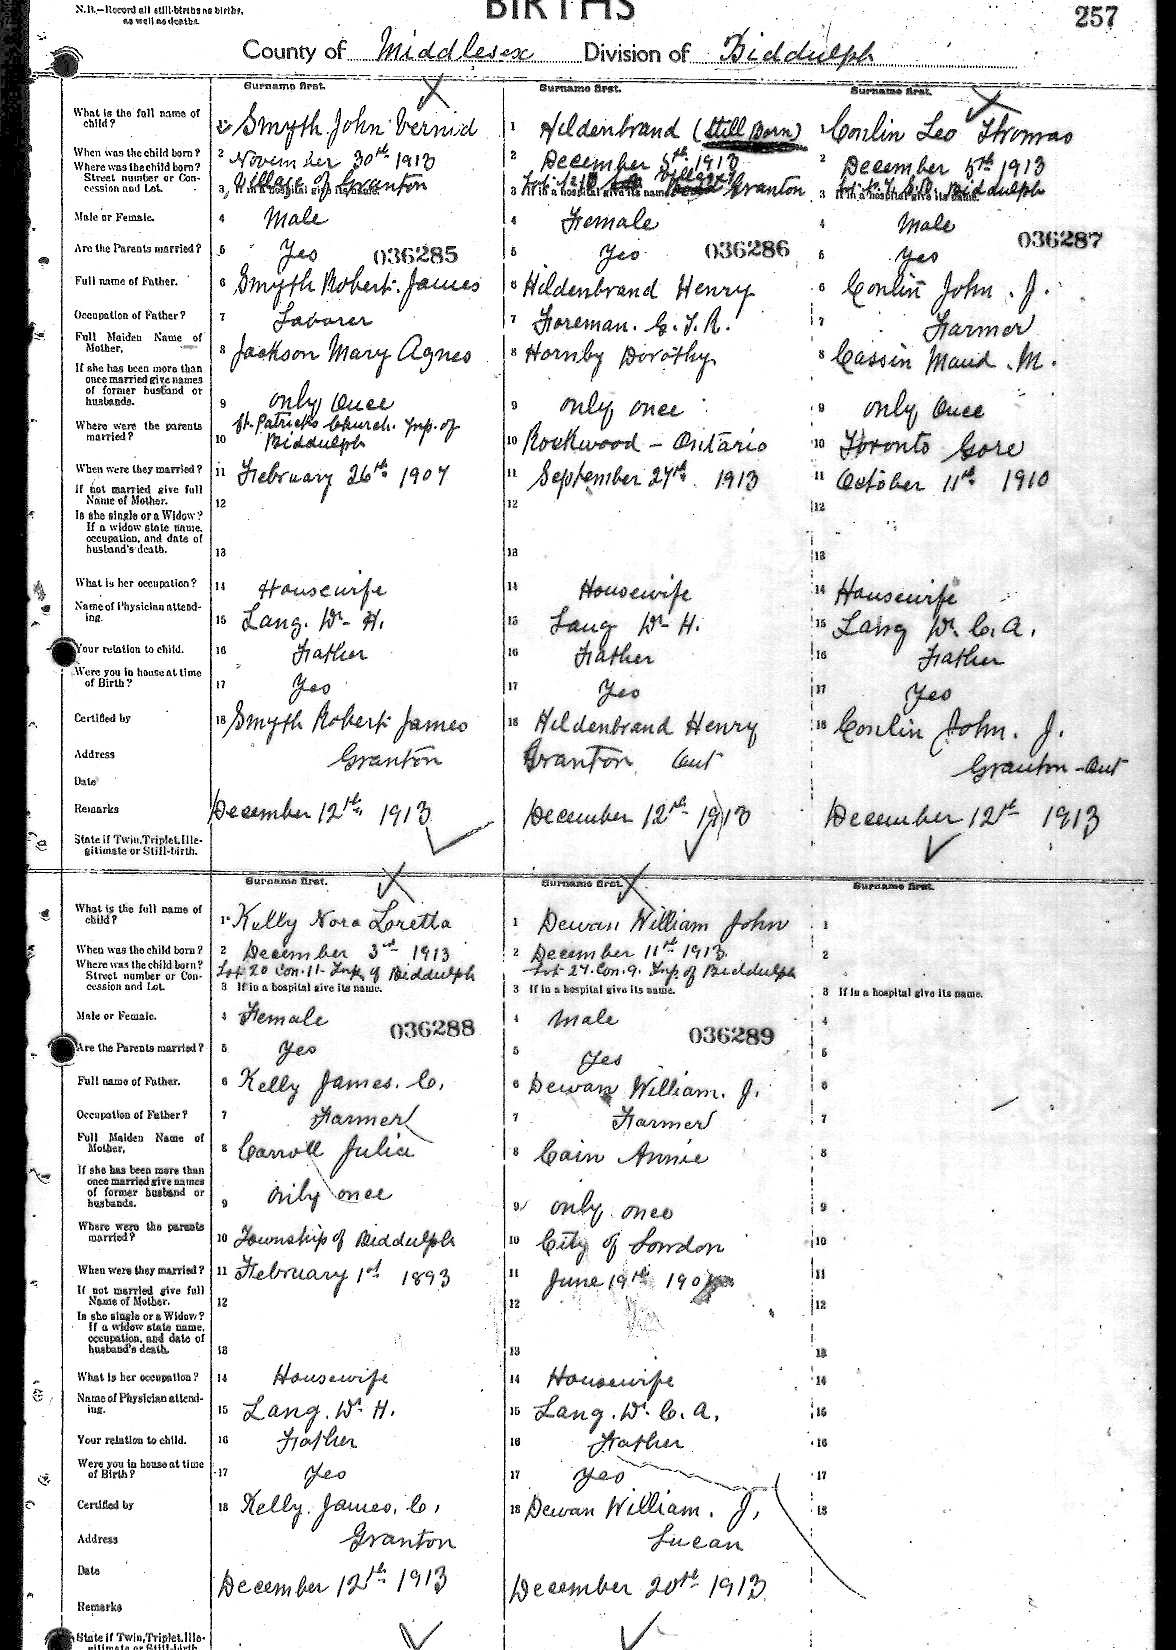 N.B.—Record all still-births as births,
as well as deaths.
BIRTHS
257
County of Middlesex Division of Biddulph
Surname first. Surname first. Surname first.
What is the full name of child? 1 Smyth John Vernid 1 Hildenbrand (Still Born) 1 Conlin Leo Thomas
When was the child born? 2 November 30th 1913 2 December 5th 1913 2 December 5th 1913
Where was the child born? Street number or Concession and Lot. 3 Village of Granton 3 Village Granton 3 Biddulph
If in a hospital give its name. If in a hospital give its name. If in a hospital give its name.
Male or Female. 4 Male 4 Female 4 Male
036285 036286 036287
Are the Parents married? 5 Yes 5 Yes 5 Yes
Full name of Father. 6 Smyth Robert James 6 Hildenbrand Henry 6 Conlin John . J.
Occupation of Father? 7 Laborer 7 Foreman. G. T. R. 7 Farmer
Full Maiden Name of Mother, 8 Jackson Mary Agnes 8 Hornby Dorothy 8 Cassin Maud . M.
If she has been more than once married give names of former husband or husbands. 9 only Once 9 only once 9 only Once
Where were the parents married? 10 St. Patricks Church. Twp. of Biddulph 10 Rockwood - Ontario 10 Toronto Gore
When were they married? 11 February 26th 1907 11 September 27th 1913 11 October 11th 1910
If not married give full Name of Mother. 12 12 12
Is she single or a Widow? If a widow state name, occupation, and date of husband's death. 13 13 13
What is her occupation? 14 Housewife 14 Housewife 14 Housewife
Name of Physician attending. 15 Lang. Dr. H. 15 Lang Dr. H. 15 Lang Dr. C. A.
Your relation to child. 16 Father 16 Father 16 Father
Were you in house at time of Birth? 17 Yes 17 Yes 17 Yes
Certified by 18 Smyth Robert James 18 Hildenbrand Henry 18 Conlin John. J.
Address Granton Granton Ont Granton - Ont
Date
Remarks December 12th 1913 December 12th 1913 December 12th 1913
State if Twin, Triplet, Illegitimate or Still-birth.
Surname first. Surname first. Surname first.
What is the full name of child? 1 Kelly Nora Loretta 1 Dewan William John 1
When was the child born? 2 December 3rd 1913 2 December 11th 1913 2
Where was the child born? Street number or Concession and Lot. Lot 20 Con. 11 Twp. of Biddulph Lot 27. Con. 9. Twp of Biddulph
3 If in a hospital give its name. 3 If in a hospital give its name. 3 If in a hospital give its name.
Male or Female. 4 Female 4 Male 4
036288 036289
Are the Parents married? 5 Yes 5 Yes 5
Full name of Father. 6 Kelly James. C. 6 Dewan William. J. 6
Occupation of Father? 7 Farmer 7 Farmer 7
Full Maiden Name of Mother, 8 Carroll Julia 8 Cain Annie 8
If she has been more than once married give names of former husband or husbands. 9 only once 9 only once 9
Where were the parents married? 10 Township of Biddulph 10 City of London 10
When were they married? 11 February 1st 1893 11 June 19th 11
If not married give full Name of Mother. 12 12 12
Is she single or a Widow? If a widow state name, occupation, and date of husband's death. 13 13 13
What is her occupation? 14 Housewife 14 Housewife 14
Name of Physician attending. 15 Lang. Dr. H. 15 Lang. Dr. C. A. 15
Your relation to child. 16 Father 16 Father 16
Were you in house at time of Birth? 17 Yes 17 Yes 17
Certified by 18 Kelly. James. C. 18 Dewan William. J. 18
Address Granton Lucan
Date December 12th 1913 December 20th 1913
Remarks
State if Twin, Triplet, Illegitimate or Still-birth.